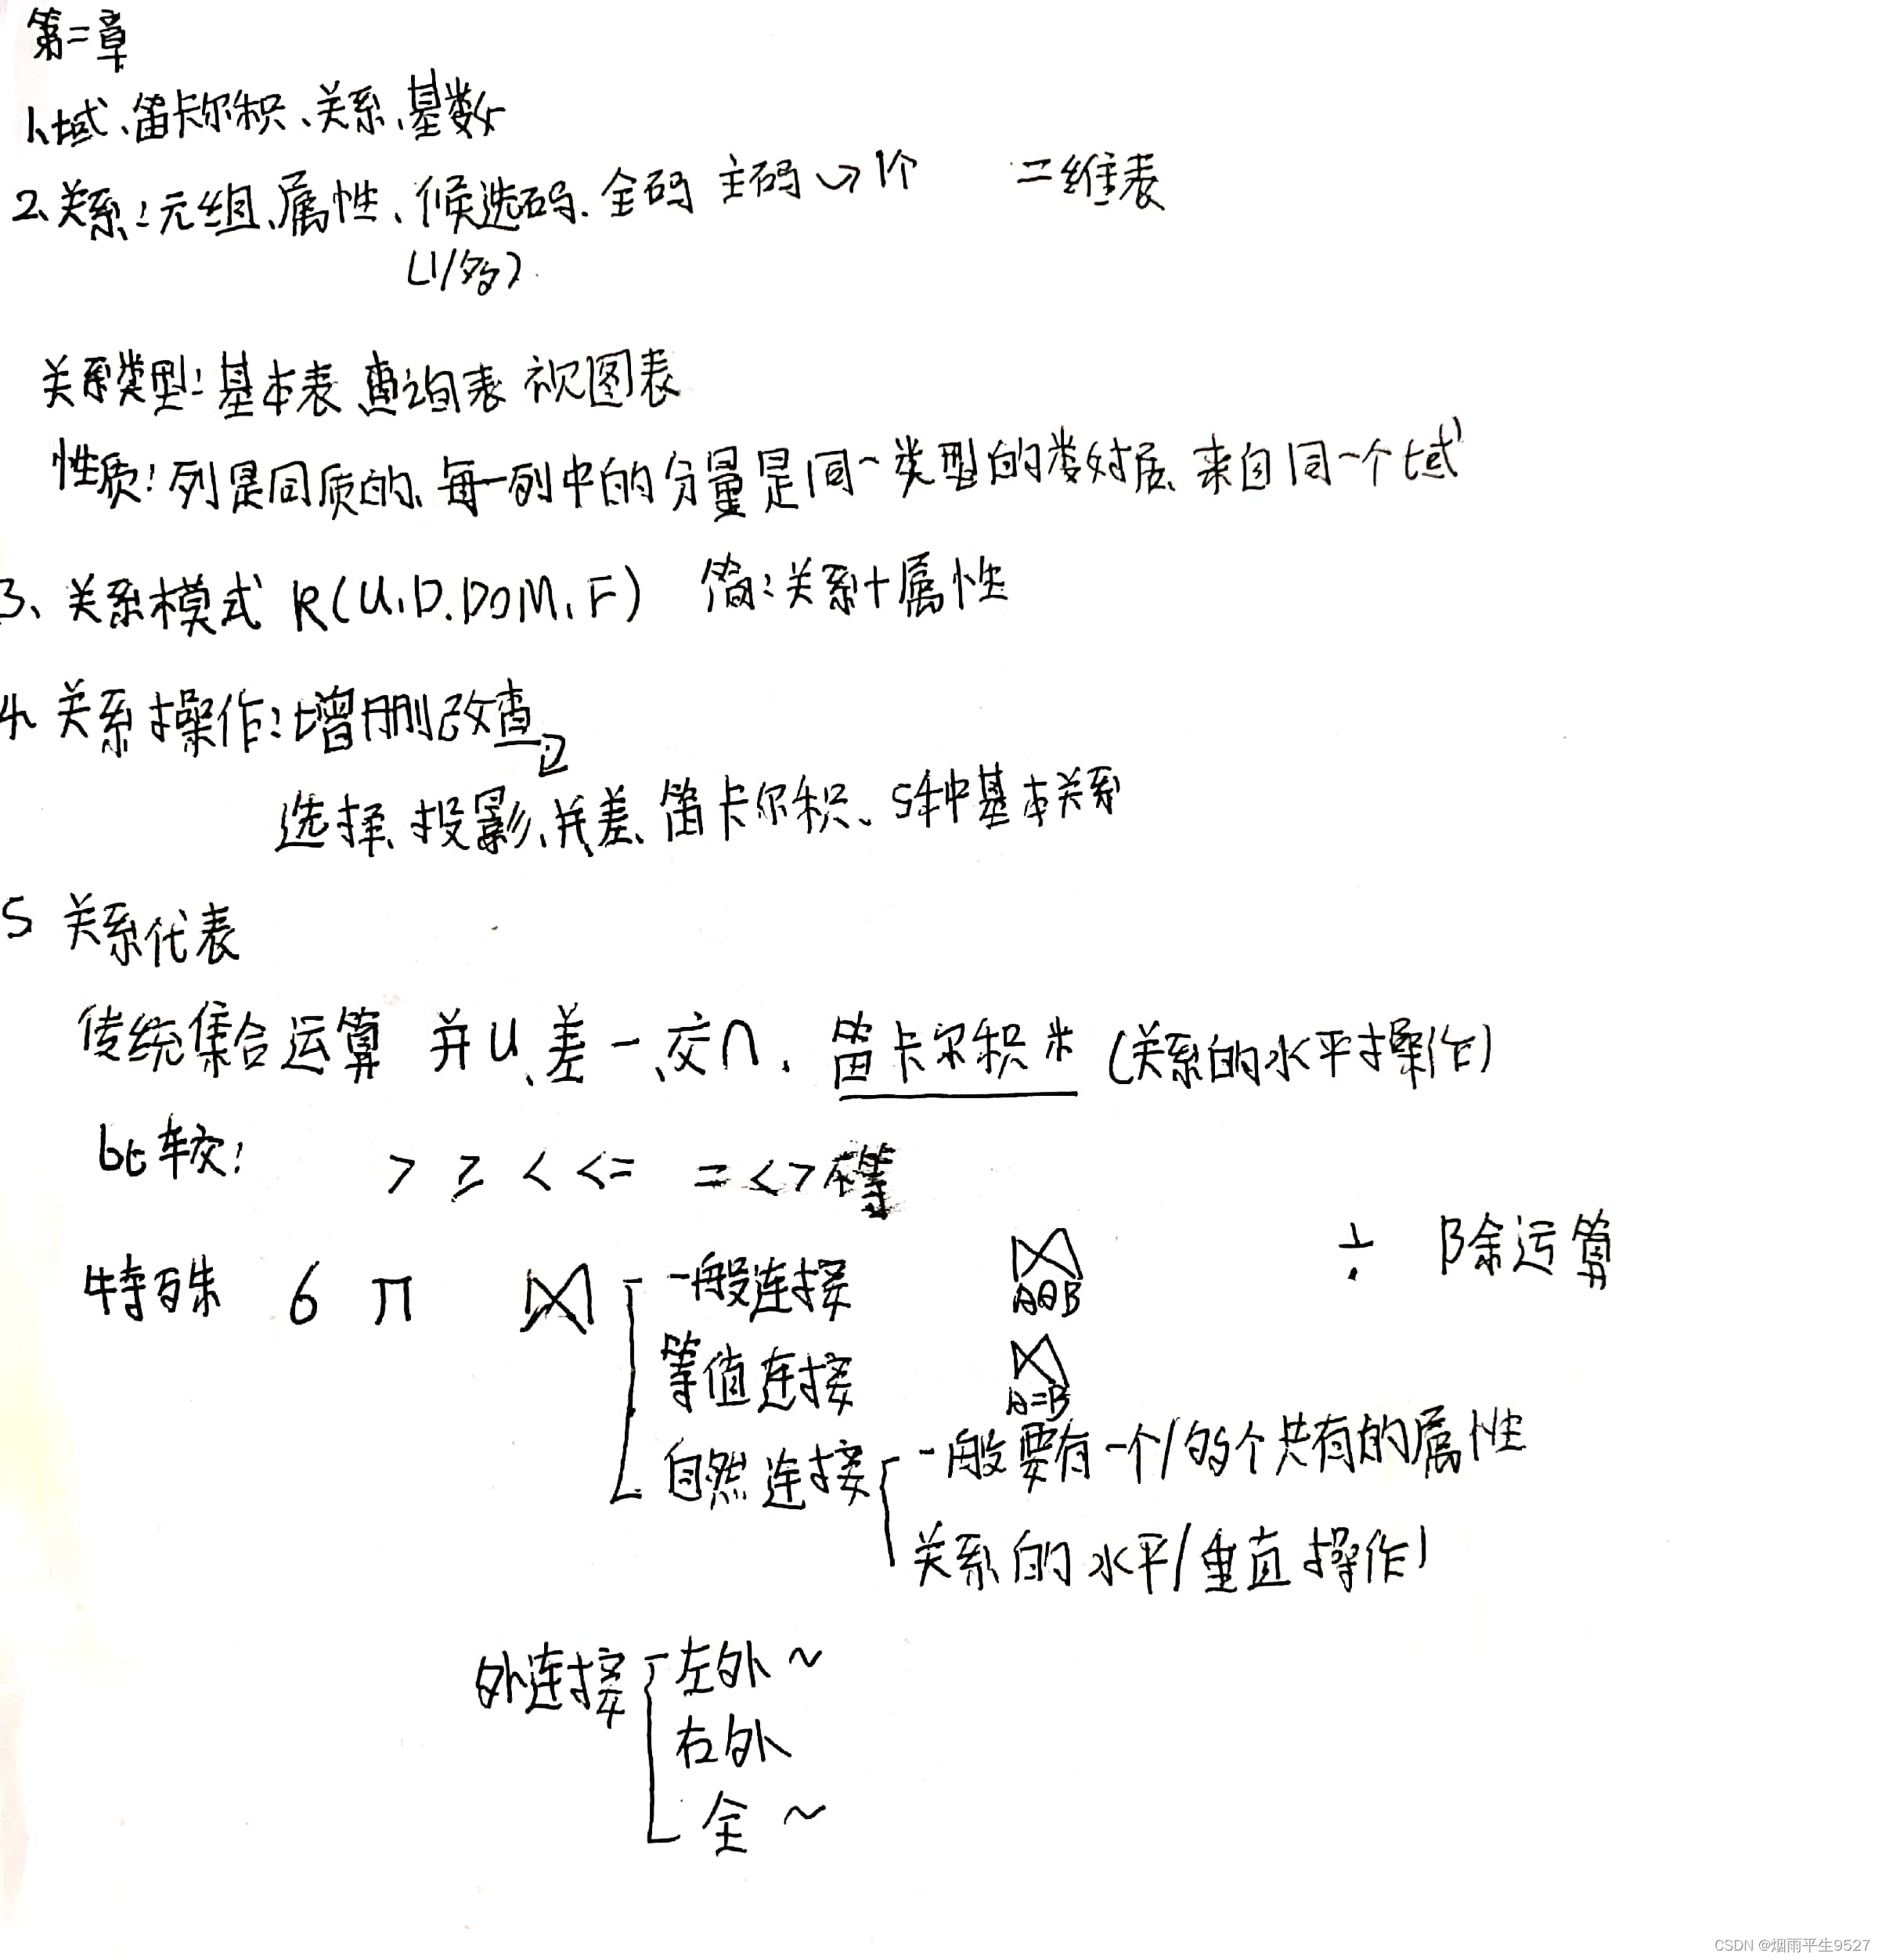 第二章
1、域、笛卡尔积、关系、基数
2、关系:元组、属性、候选码、全码 主码→1个 二维表
(1/多)
关系类型:基本表 查询表 视图表
性质:列是同质的、每一列中的分量是同一类型的数据、来自同一个域
3、关系模式 R(U,D,DOM,F) 简:关系+属性
4、关系操作:增删改查
选择、投影、并、差、笛卡尔积、5种基本关系
5 关系代表
传统集合运算 并∪、差-、交∩、笛卡尔积* (关系的水平操作)
比较: > ≥ < <= = <>不等
特殊 6 π ⋈ 一般连接 ⋈ AθB ÷ 除运算
等值连接 ⋈ A=B
自然连接 一般要有一个/多个共有的属性
关系的水平/垂直操作)
外连接 左外~
右外
全~
CSDN @烟雨平生9527